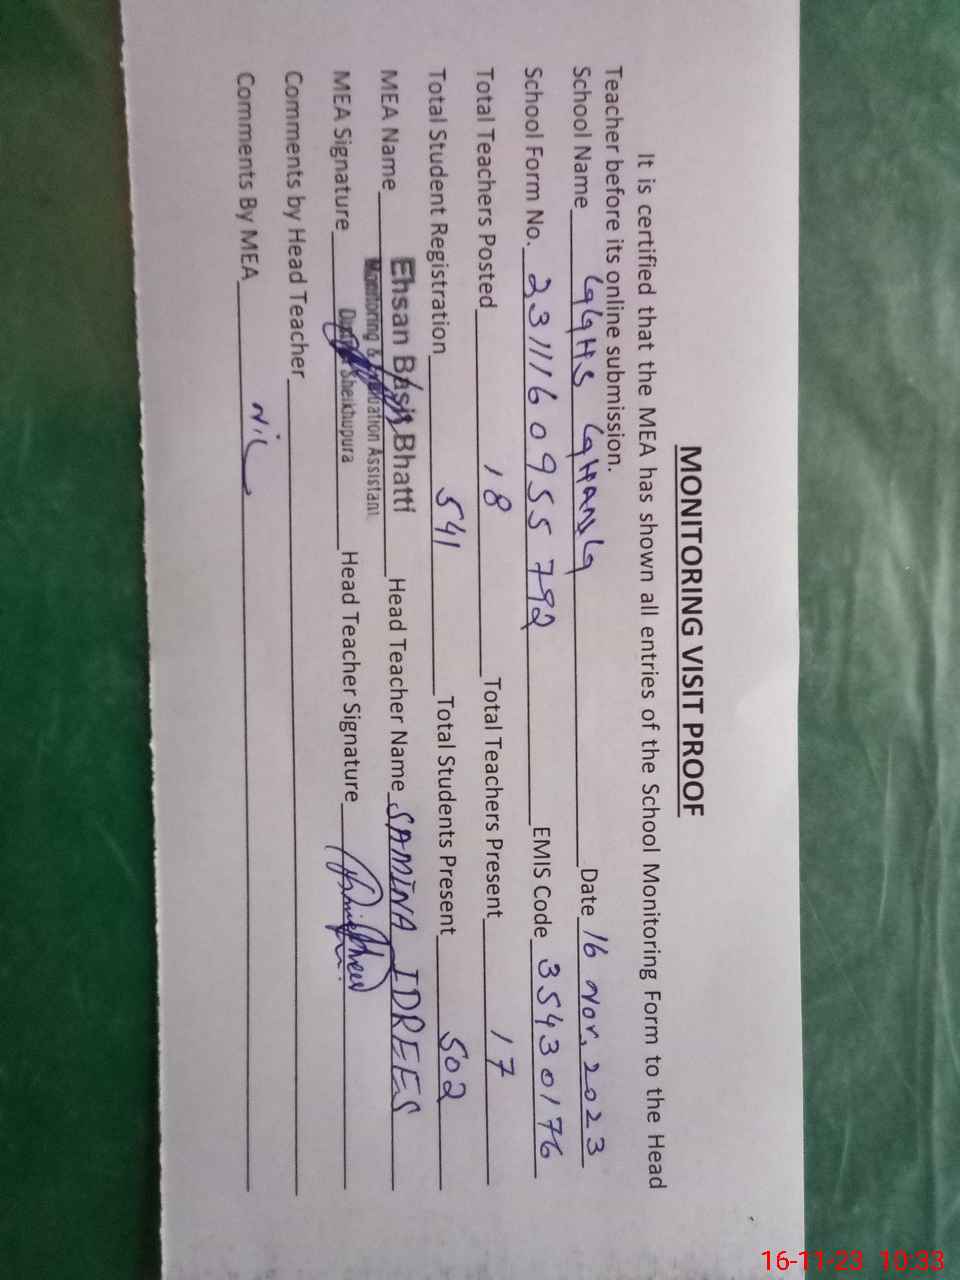 MONITORING VISIT PROOF
It is certified that the MEA has shown all entries of the School Monitoring Form to the Head
Teacher before its online submission.
School Name GGHS GHANG Date 16 Nov, 2023
School Form No. 2311160955792 EMIS Code 35430176
Total Teachers Posted 18 Total Teachers Present 17
Total Student Registration 541 Total Students Present 502
MEA Name Ehsan Basit Bhatti Head Teacher Name SAMINA IDREES
Monitoring & Evaluation Assistant
MEA Signature District Sheikhupura Head Teacher Signature
Comments by Head Teacher
Comments By MEA Nil
16-11-23 10:33